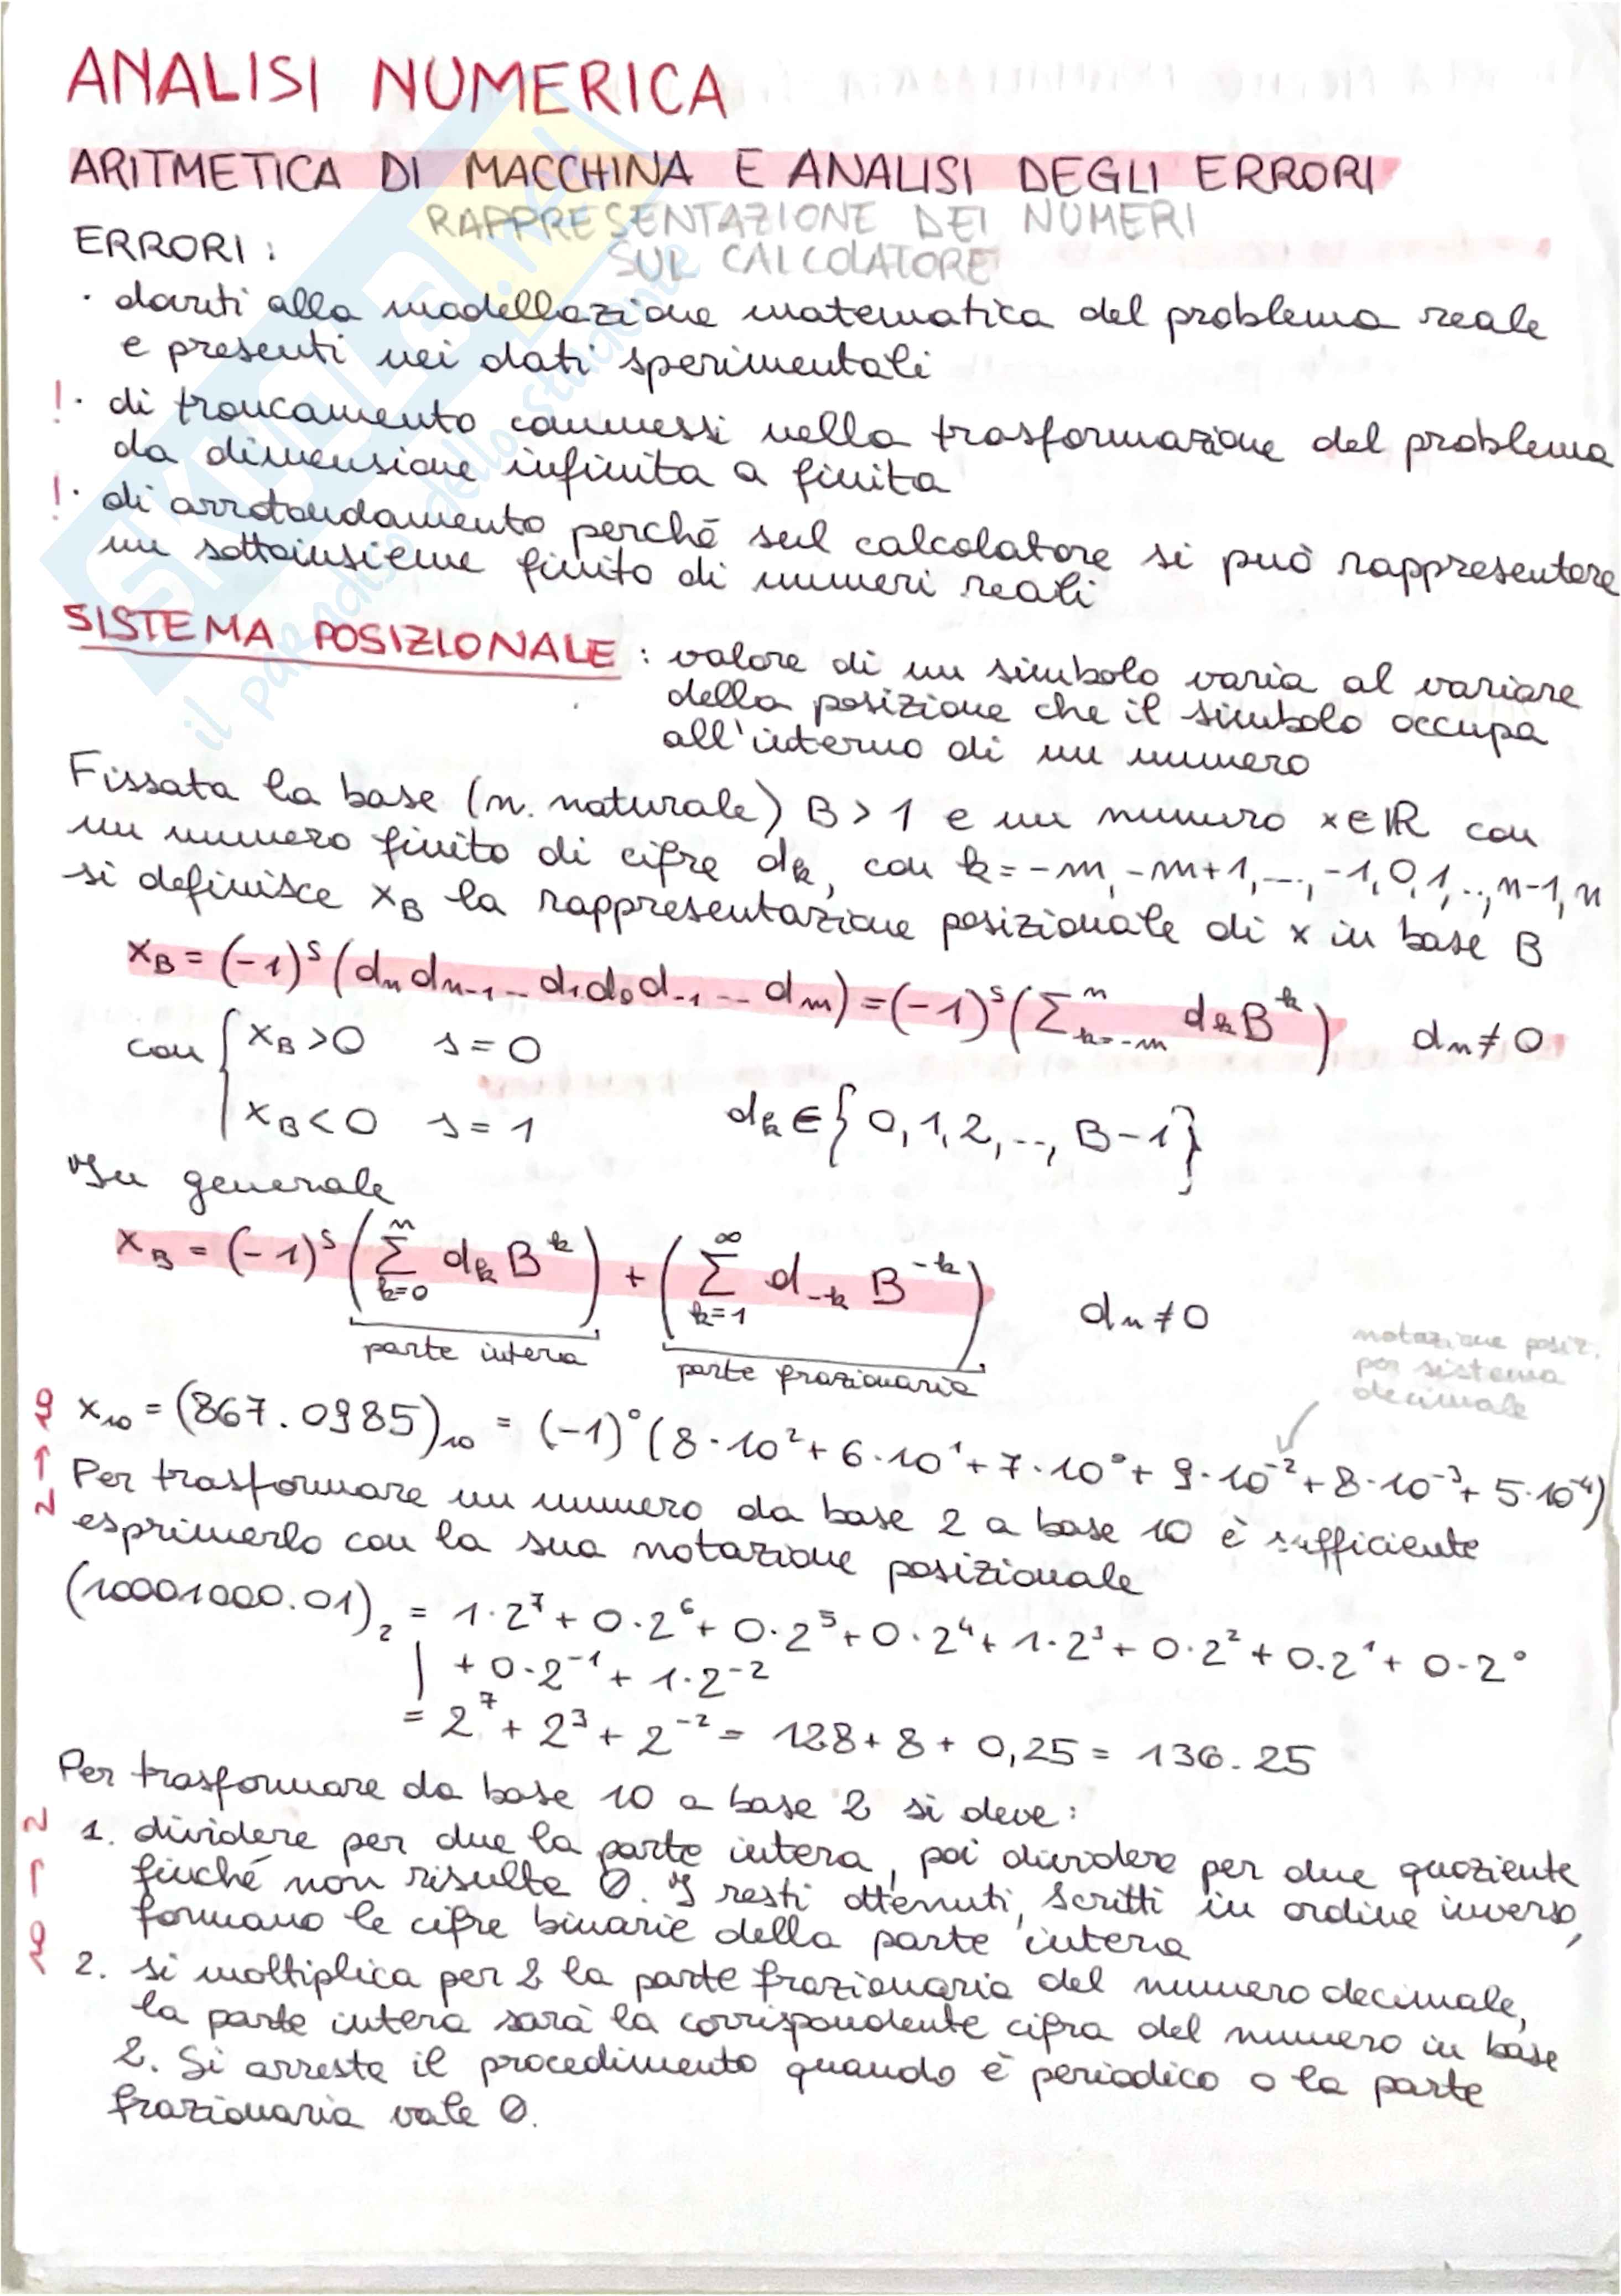 ANALISI NUMERICA
ARITMETICA DI MACCHINA E ANALISI DEGLI ERRORI
RAPPRESENTAZIONE DEI NUMERI
SUL CALCOLATORE
ERRORI:
· dovuti alla modellazione matematica del problema reale
e presenti nei dati sperimentali
! · di troncamento commessi nella trasformazione del problema
da dimensione infinita a finita
! · di arrotondamento perché sul calcolatore si può rappresentare
un sottoinsieme finito di numeri reali
SISTEMA POSIZIONALE : valore di un simbolo varia al variare
della posizione che il simbolo occupa
all'interno di un numero
Fissata la base (n. naturale) B > 1 e un numero x ∈ ℝ con
un numero finito di cifre dₖ, con k = -m, -m+1, ..., -1, 0, 1, .., n-1, n
si definisce x_B la rappresentazione posizionale di x in base B
x_B = (-1)^s (d_n d_{n-1} ... d_1 d_0 d_{-1} ... d_m) = (-1)^s (Σ_{k=-m}^{n} d_k B^k) d_n ≠ 0
con { x_B > 0 s = 0
x_B < 0 s = 1 d_k ∈ {0, 1, 2, .., B-1}
In generale
x_B = (-1)^s (Σ_{k=0}^{n} d_k B^k) + (Σ_{k=1}^{∞} d_{-k} B^{-k}) d_n ≠ 0
parte intera parte frazionaria
notazione posiz.
per sistema
decimale
x₁₀ = (867.0985)₁₀ = (-1)⁰ (8·10² + 6·10¹ + 7·10⁰ + 9·10⁻² + 8·10⁻³ + 5·10⁻⁴)
2 → 10
Per trasformare un numero da base 2 a base 10 è sufficiente
esprimerlo con la sua notazione posizionale
(10001000.01)₂ = 1·2⁷ + 0·2⁶ + 0·2⁵ + 0·2⁴ + 1·2³ + 0·2² + 0·2¹ + 0·2⁰
+ 0·2⁻¹ + 1·2⁻²
= 2⁷ + 2³ + 2⁻² = 128 + 8 + 0,25 = 136.25
Per trasformare da base 10 a base 2 si deve:
10 → 2
1. dividere per due la parte intera, poi dividere per due quoziente
finché non risulta 0. I resti ottenuti, scritti in ordine inverso,
formano le cifre binarie della parte intera
2. si moltiplica per 2 la parte frazionaria del numero decimale,
la parte intera sarà la corrispondente cifra del numero in base
2. Si arresta il procedimento quando è periodico o la parte
frazionaria vale 0.
SKUOLA.net
il paradiso dello studente